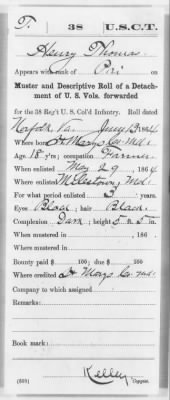 T. 38 U.S.C.T.
Henry Thomas
Appears with rank of Pri on
Muster and Descriptive Roll of a Detach-
ment of U. S. Vols. forwarded
for the 38 Reg't U. S. Col'd Infantry. Roll dated
Norfolk Va. 1864
Where born St. Marys Co. Md.
Age 18 y'rs; occupation Farmer
When enlisted May 29, 186
Where enlisted Md.
For what period enlisted 3 years.
Eyes Black; hair Black
Complexion Dark; height 5 ft. 5 in.
When mustered in , 186 .
Where mustered in
Bounty paid $ 100; due $ 100
Where credited St. Marys Co. Md.
Company to which assigned
Remarks:
Book mark:
Kelley
Copyist.